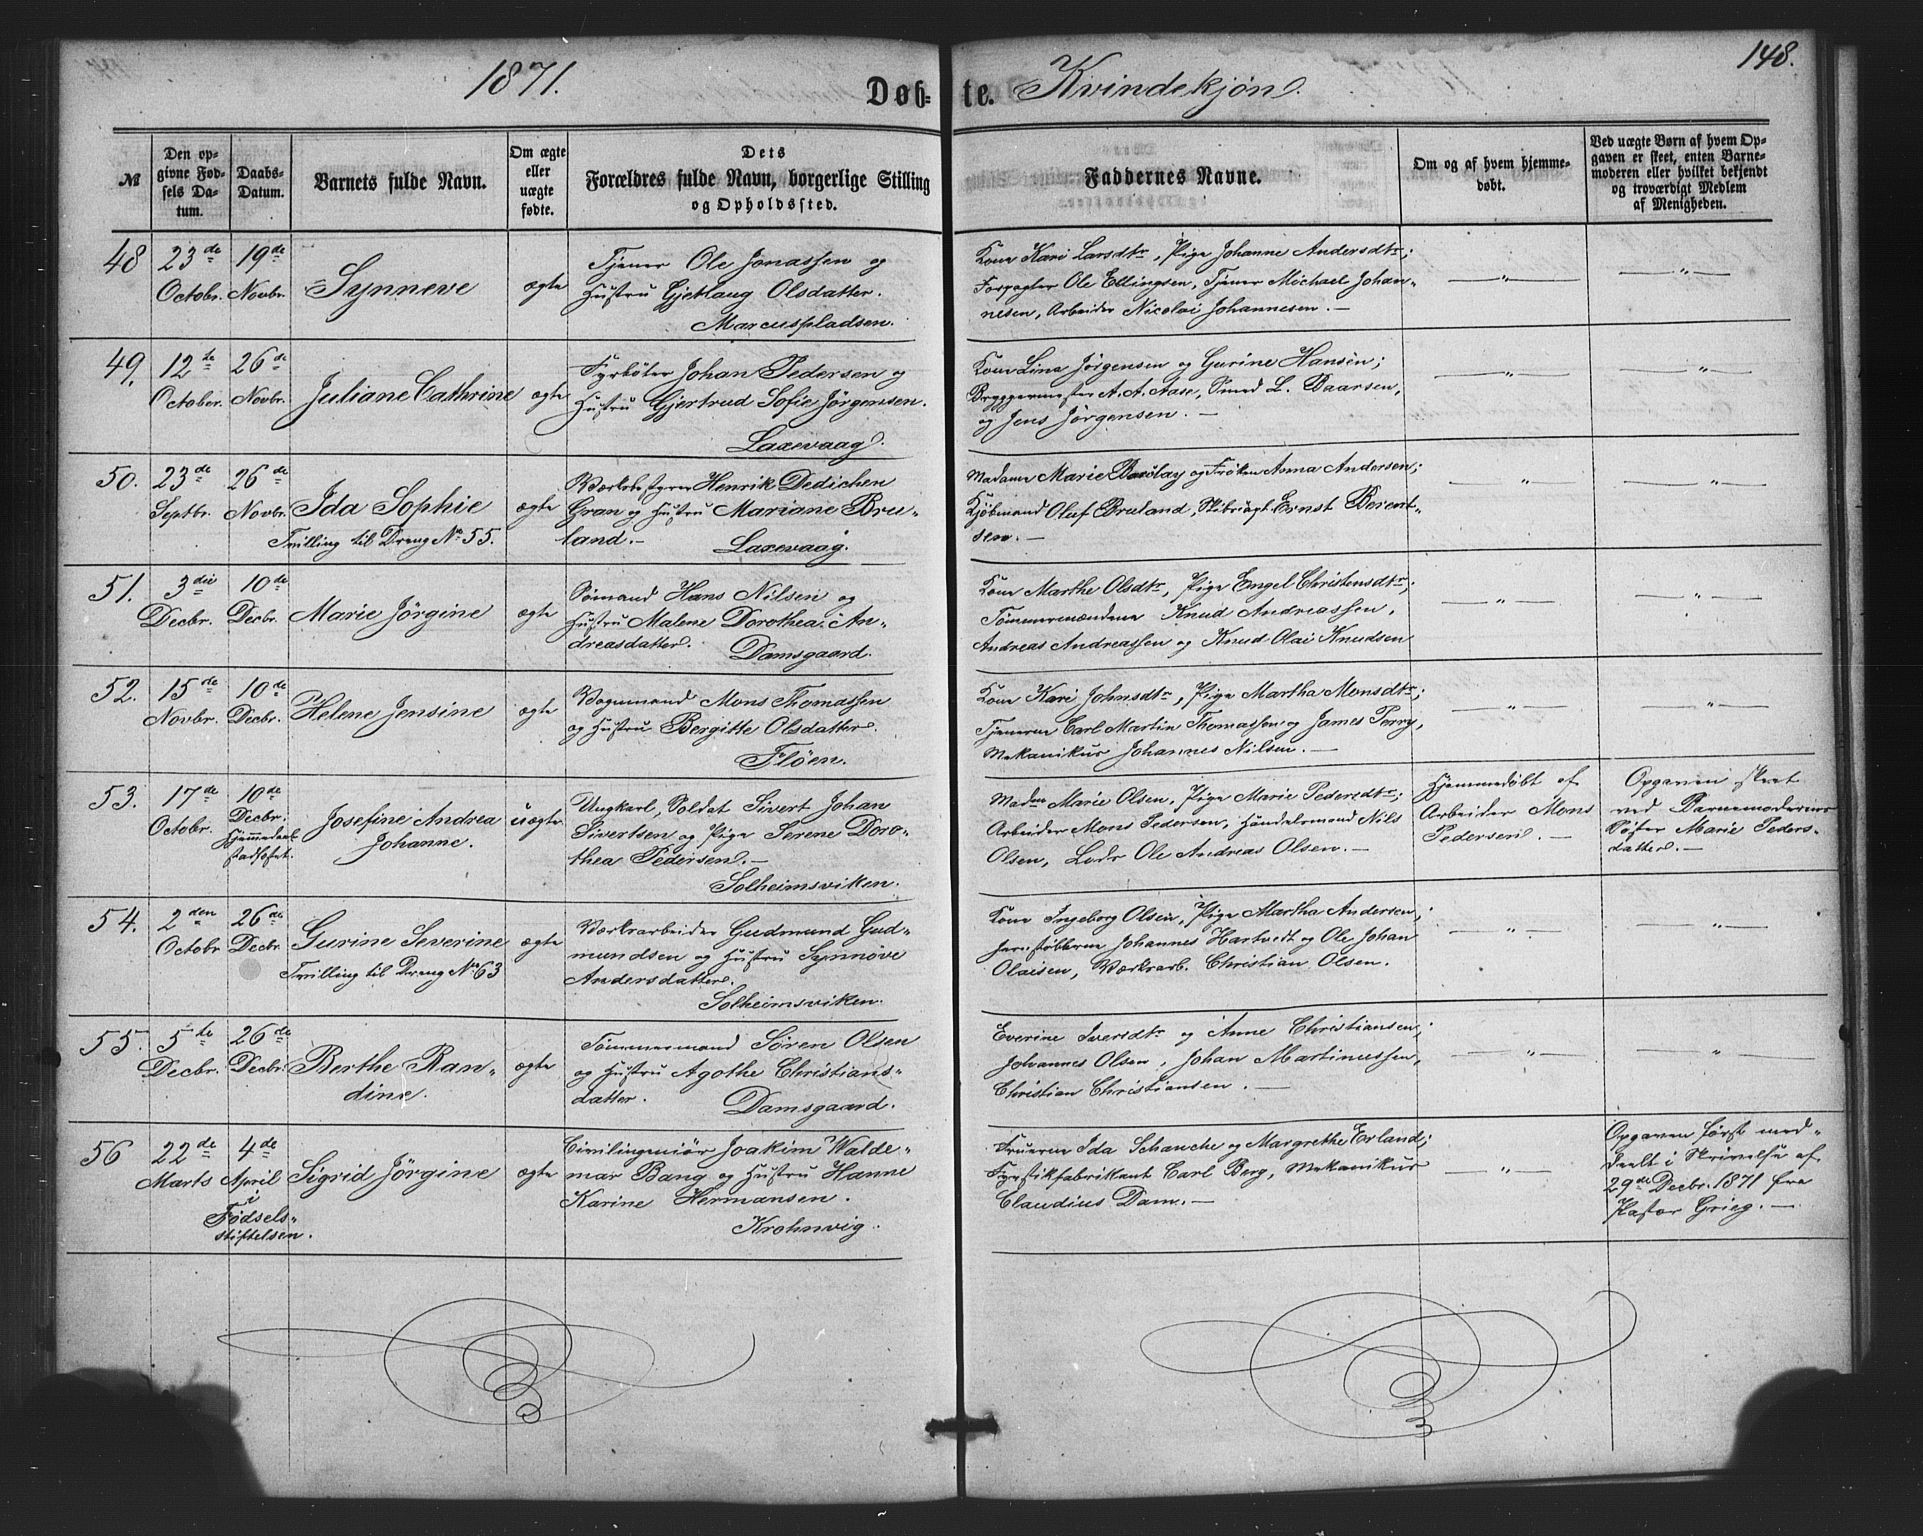 1871.
Døb-
te.
Kvindekjøn.
148.
№
Den opgivne Fødsels Datum.
Daabs-Datum.
Barnets fulde Navn.
Om ægte eller uægte fødte.
Dets Forældres fulde Navn, borgerlige Stilling og Opholdssted.
Faddernes Navne.
Om og af hvem hjemmedøbt.
Ved uægte Børn af hvem Opgaven er skeet, enten Barnemoderen eller hvilket bekjendt og troværdigt Medlem af Menigheden.
48
23de Octobr.
19de Novbr.
Synneve
ægte
Tjener Ole Jonassen og
Hustru Gjetlaug Olsdatter.
Marcuspladsen.
Kone Kari Larsdtr, Pige Johanne Andersdtr;
Forpagter Ole Ellingsen, Tjener Michael Johan-
nesen, Arbeider Nicolai Johannesen. —
— " —
— " —
49.
12te October.
26de Novbr.
Juliane Cathrine
ægte
Fyrbøter Johan Pedersen og
Hustru Gjertrud Sofie Jørgensen.
Laxevaag.
Kone Lina Jørgensen og Gurine Hansen;
Bryggermester A. A. Aase, Smed L. Baarsen,
og Jens Jørgensen. —
— " —
— " —
50.
23de Septbr.
26de Novbr.
Ida Sophie
Tvilling til Dreng No 55.
ægte
Værksbestyrer Henrik Dedichen
Gran og Hustru Mariane Bru-
land. —
Laxevaag.
Madame Marie Barclay og Frøken Anna Andersen;
Kjøbmand Oluf Bruland, Skibsrigt. Ernst Berent-
sen. —
"
— " —
51.
3die Decbr.
10de Decbr.
Marie Jørgine
ægte
Sømand Hans Nilsen og
Hustru Malene Dorothea An-
dreasdatter.
Damsgaard.
Kone Marthe Olsdtr, Pige Engel Christensdtr;
Tømmermændene Knud Andreassen,
Andreas Andreassen og Knud Olai Knudsen
— " —
— " —
52.
15de Novbr.
10de Decbr.
Helene Jensine
ægte
Vognmand Mons Thomassen
og Hustru Bergitte Olsdatter.
Fløen.
Kone Kari Johnsdtr, Pige Martha Monsdtr;
Tjenerne Carl Martin Thomassen og James Perry,
Mekanikus Johannes Nilsen. —
— " —
— " —
53.
17de Octobr.
10de Decbr.
Hjemmedaab
stadfæst.
Josefine Andrea
Johanne.
uægte
Ungkarl, Soldat Sivert Johan
Sivertsen og Pige Serene Doro-
thea Pedersen. —
Solheimsviken.
Madme Marie Olsen, Pige Marie Pedersdtr;
Arbeider Mons Pedersen, Handelsmand Nils
Olsen, Lods Ole Andreas Olsen. —
Hjemmedøbt af
Arbeider Mons
Pedersen. —
Opgaven skeet
ved Barnemoderens
Søster Marie Peders-
datter. —
54.
2den Octobr
26de Decbr.
Gurine Severine
Tvilling til Dreng No 63
ægte
Værksarbeider Gudmund Gud-
mundsen og Hustru Synnøve
Andersdatter.
Solheimsviken.
Kone Ingeborg Olsen, Pige Martha Andersen;
Jernstøberne Johannes Hartvedt og Ole Johan
Olaisen, Værksarb. Christian Olsen.
— " —
— " —
55.
5te Decbr.
26de Decbr.
Berthe Ran-
dine.
ægte
Tømmermand Søren Olsen
og Hustru Agathe Christians-
datter.
Damsgaard.
Everine Iversdtr og Anne Christiansen;
Johannes Olsen, Johan Martinussen,
Christian Christiansen. —
— " —
"
56
22de Marts
4de April
i
Fødsels-
stiftelsen.
Sigrid Jørgine
ægte
Civilingeniør Joakim Walde-
mar Bang og Hustru Hanne
Karine Hermansen.
Krohnvig.
Fruerne Ida Schanche og Margrethe Erland;
Fyrstikfabrikant Carl Berg, Mekanikus
Claudius Dam. —
— " —
Opgaven først med-
deelt i Skrivelse af
29de Decbr. 1871 fra
Pastor Grieg. —